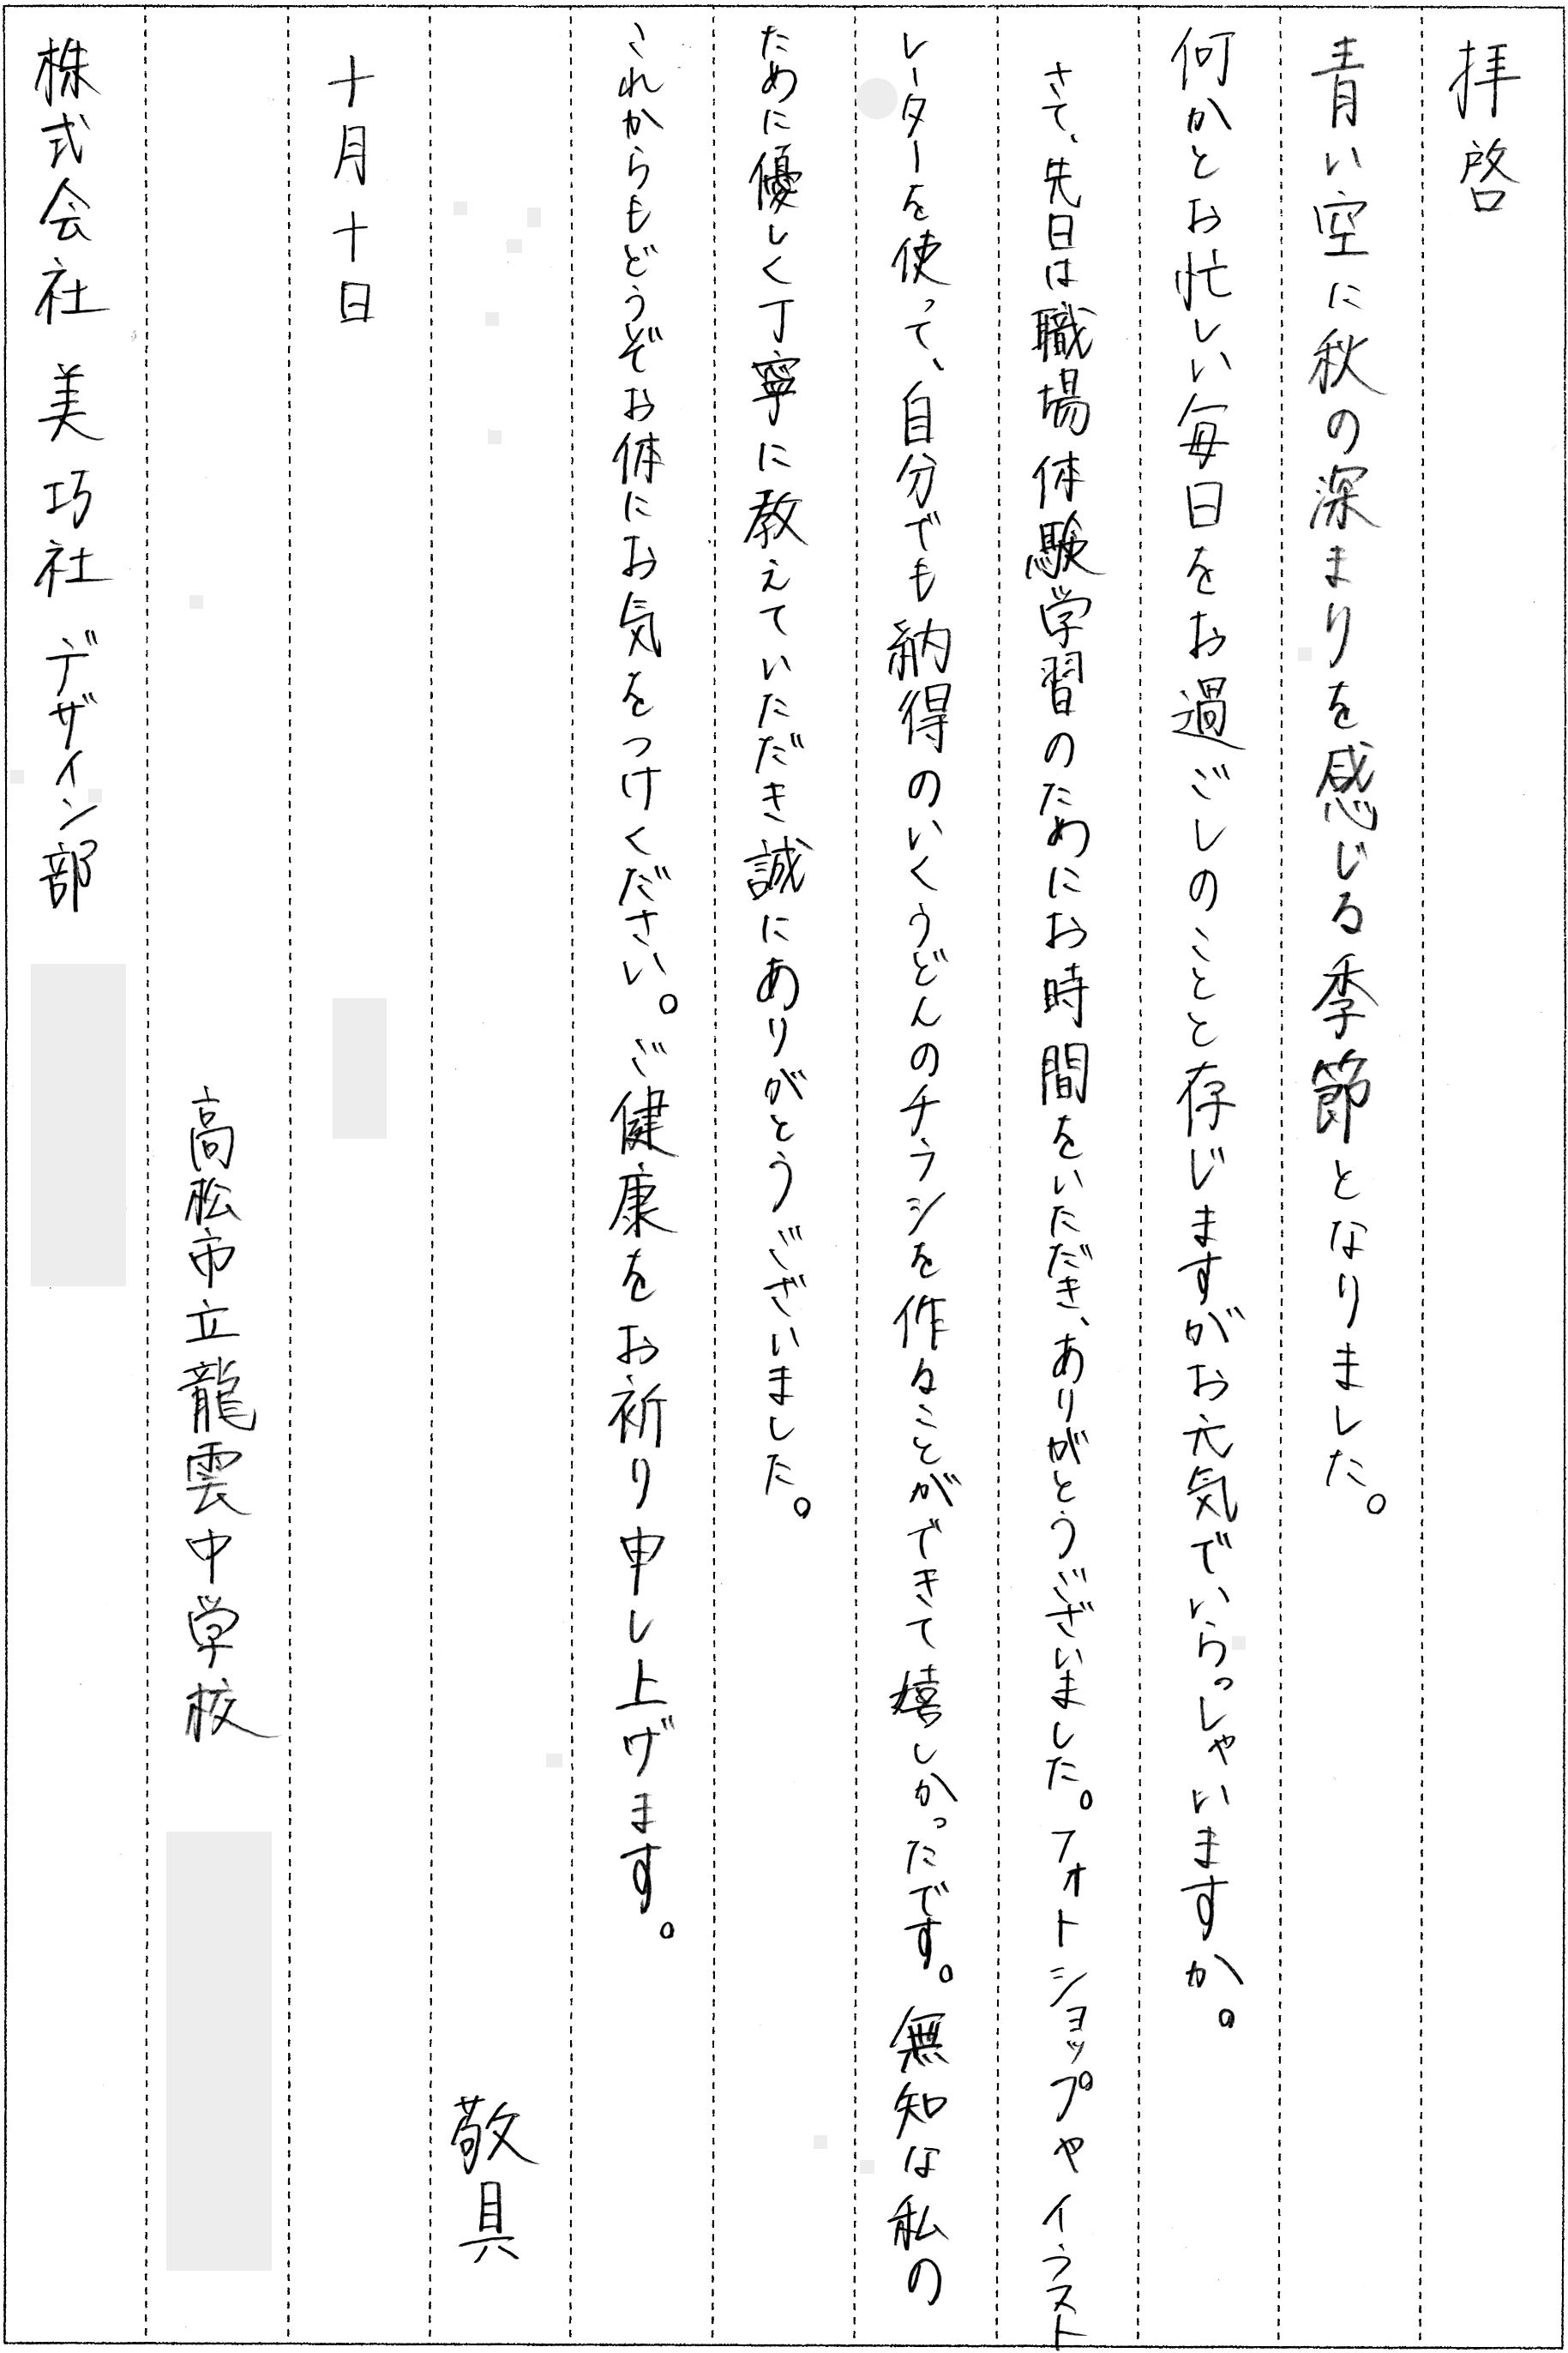 拝啓
青い空に秋の深まりを感じる季節となりました。
何かとお忙しい毎日をお過ごしのことと存じますがお元気でいらっしゃいますか。
さて、先日は職場体験学習のためにお時間をいただき、ありがとうございました。フォトショップやイラスト
レーターを使って、自分でも納得のいくうどんのチラシを作ることができて嬉しかったです。無知な私の
ために優しく丁寧に教えていただき誠にありがとうございました。
これからもどうぞお体にお気をつけください。ご健康をお祈り申し上げます。
敬具
十月十日
高松市立龍雲中学校
株式会社 美巧社 デザイン部